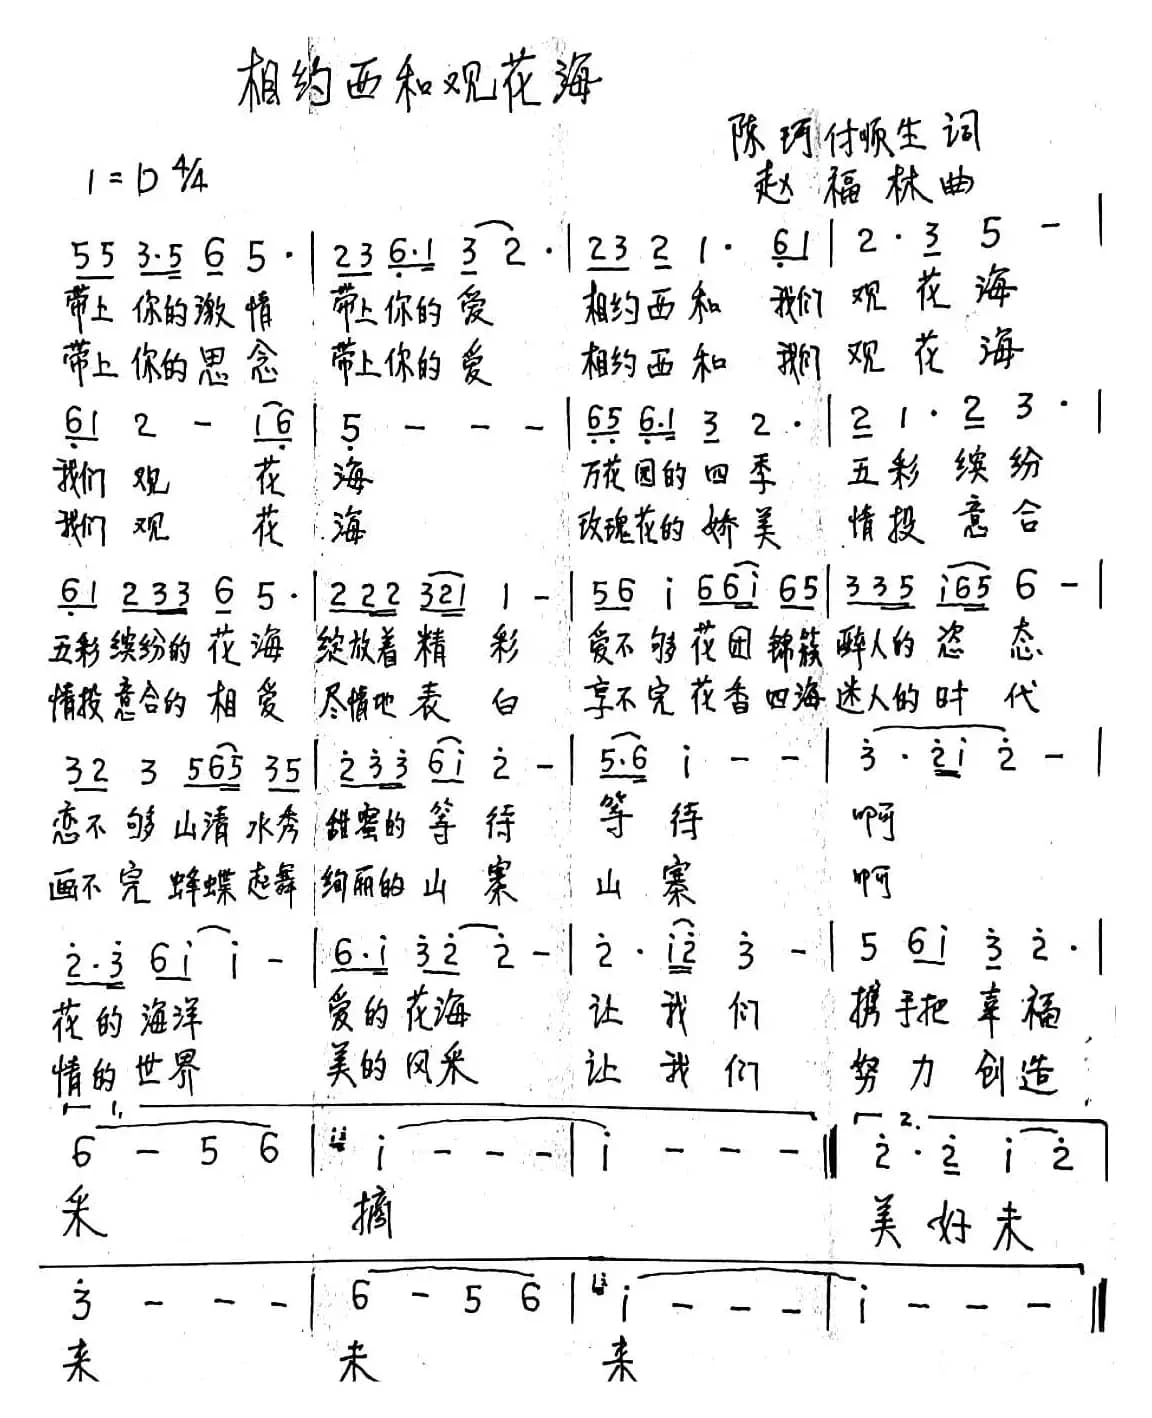 相约西和观花海
陈珂付顺生词
1=D 4/4
赵福林曲
55 3·5 6 5· | 23 6·1 3 2· | 23 2 1· 61 | 2· 3 5 - |
带上你的激情 带上你的爱 相约西和 我们观花海
带上你的思念 带上你的爱 相约西和 我们观花海
61 2 - i6 | 5 - - - | 65 6·1 3 2· | 2 1· 2 3· |
我们观 花 海 万花园的四季 五彩缤纷
我们观 花 海 玫瑰花的娇美 情投意合
61 233 6 5· | 222 321 1 - | 56 i 66i 65 | 335 i65 6 - |
五彩缤纷的花海 绽放着精彩 爱不够花团锦簇 醉人的恣态
情投意合的相爱 尽情地表白 享不完花香四海 迷人的时代
32 3 565 35 | 2̇3̇3̇ 6i 2̇ - | 5·6 i - - | 3̇· 2̇i 2̇ - |
恋不够山清水秀 甜蜜的等待 等待 啊
画不完蜂蝶起舞 绚丽的山寨 山寨 啊
2̇·3̇ 6i i - | 6·i 3̇2̇ 2̇ - | 2̇· i2̇ 3̇ - | 5 6i 3̇ 2̇· |
花的海洋 爱的花海 让我们 携手把幸福
情的世界 美的风采 让我们 努力创造
1. 2.
6 - 5 6 | i - - - | i - - - ‖ 2̇· 2̇ i 2̇
采 摘 美好未
3̇ - - - | 6 - 5 6 | i - - - | i - - - ‖
来 未 来